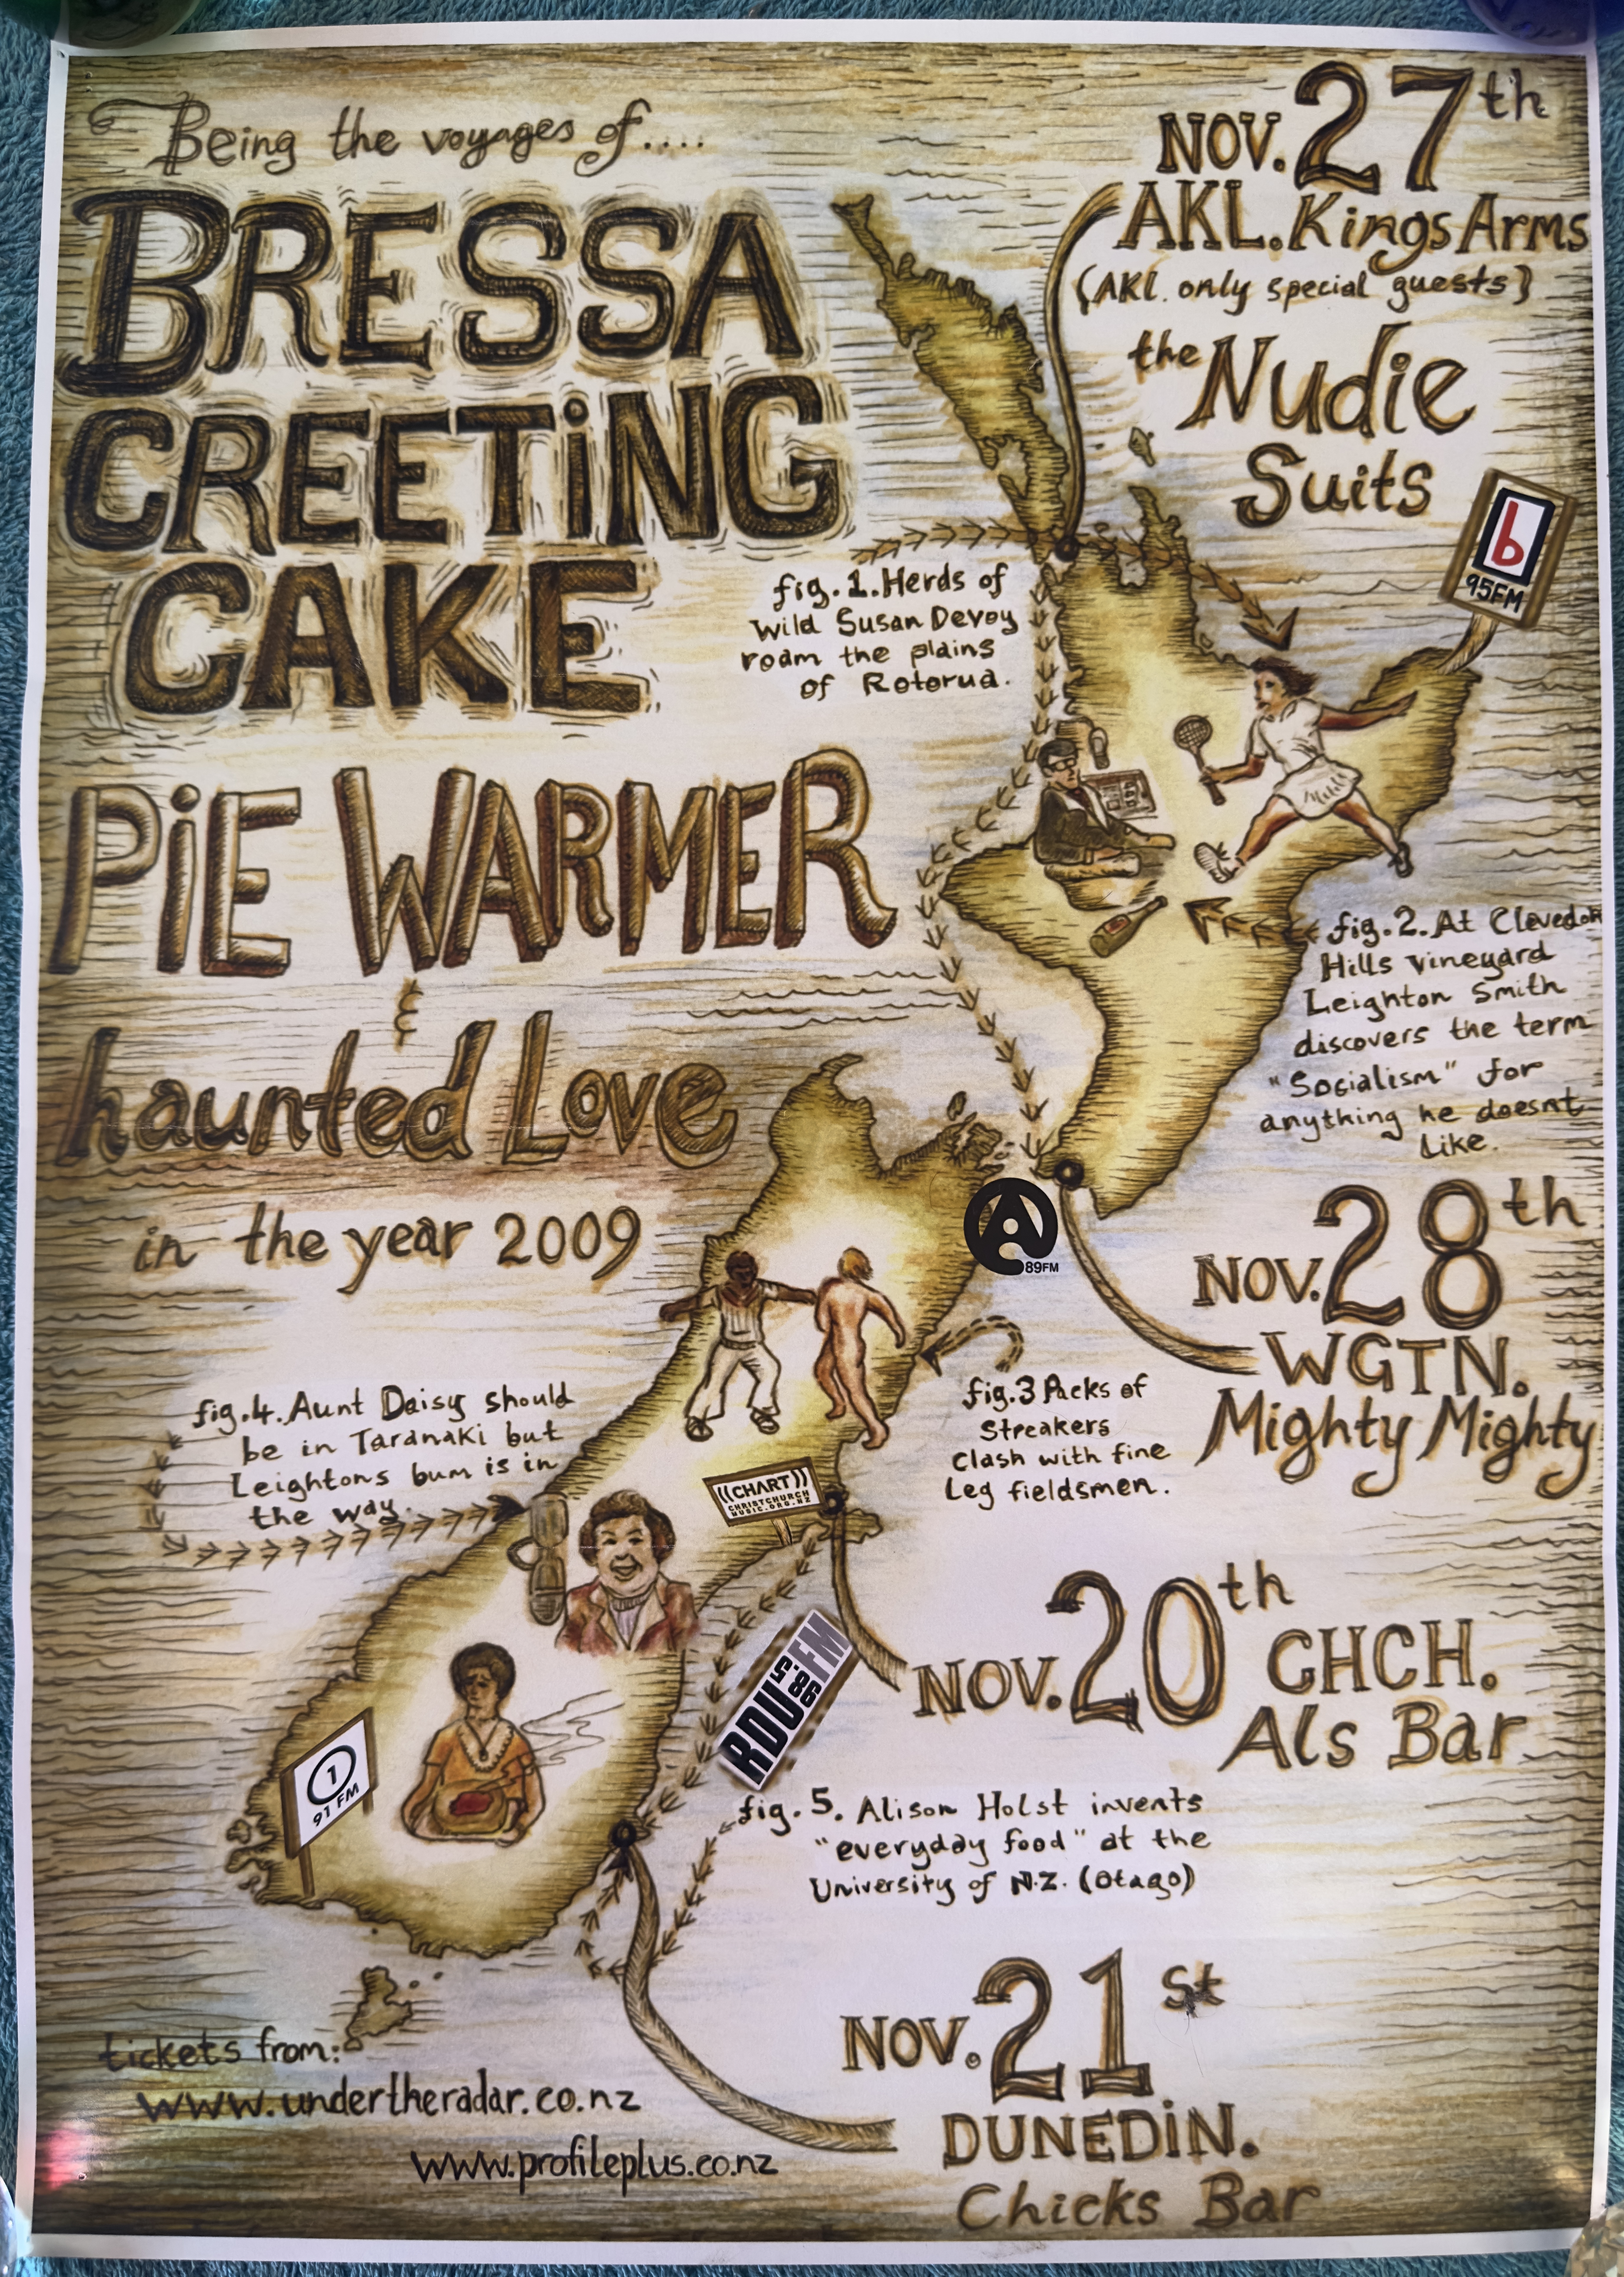 Being the voyages of....
BRESSA
CREETiNG
CAKE
PiE WARMER
&
haunted Love
in the year 2009
NOV. 27th
AKL. Kings Arms
(AKL. only special guests)
the Nudie
Suits
b
95FM
fig. 1. Herds of
Wild Susan Devoy
roam the plains
of Rotorua.
fig. 2. At Clevedon
Hills vineyard
Leighton Smith
discovers the term
"Socialism" for
anything he doesnt
Like.
A
89FM
NOV. 28th
WGTN.
Mighty Mighty
fig. 3 Packs of
Streakers
Clash with fine
Leg fieldsmen.
fig. 4. Aunt Daisy should
be in Taranaki but
Leightons bum is in
the way.
((CHART))
CHRISTCHURCH
MUSIC.ORG.NZ
NOV. 20th CHCH.
Als Bar
RDU 98.5 FM
1
91 FM
fig. 5. Alison Holst invents
"everyday food" at the
University of N.Z. (Otago)
NOV. 21st
DUNEDiN.
Chicks Bar
tickets from:
www.undertheradar.co.nz
www.profileplus.co.nz